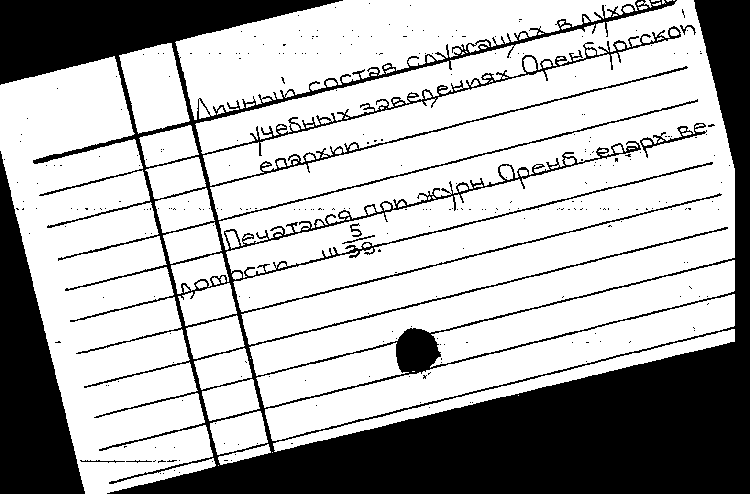 Личный состав служащих в духовно-
учебных заведениях Оренбургской
епархии...
Печатался при журн. Оренб. епарх. ве-
домости... Ш 5/39.